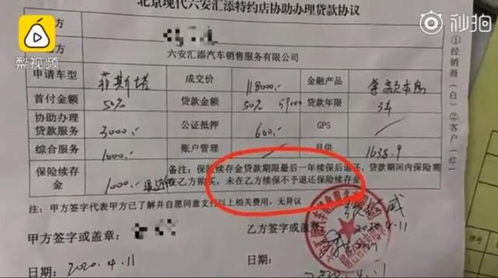 北京现代六安汇添特约店协助办理贷款协议
梨视频
秒拍
甲方
六安汇添汽车销售服务有限公司
申请车型 菲斯塔 成交价 118000 金融产品
首付金额 50% 贷款金额 50% 59000 贷款年限 3年
协助办理贷款服务 3000 公证抵押 600 GPS
综合服务 1000 账户管理 月供 1638.9
保险续存金 1000
备注:保险续存金贷款期限最后一年续保后退还,贷款期间内保险需
在乙方购买,未在乙方续保不予退还保险续存金
甲方签字代表甲方已了解并自愿同意支付以上相关费用,无异议
甲方签字或盖章: 乙方签字或盖章:
2020.4.11
日期: 2020.4.11 日期:
①经销商(白) ②客户(红)